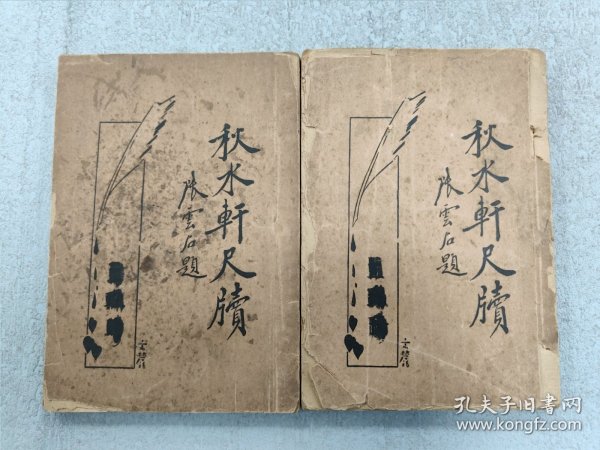 秋水軒尺牘
張雲石題
秋水軒尺牘
張雲石題
孔夫子旧书网
www.kongfz.com